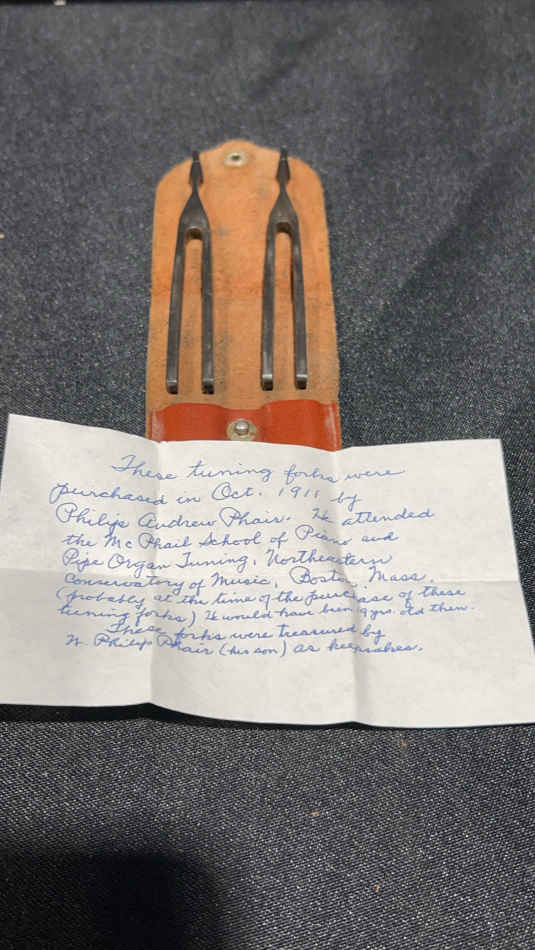 These tuning forks were
purchased in Oct. 1911 by
Philip Andrew Phair. He attended
the McPhail School of Piano and
Pipe Organ Tuning, Northeastern
Conservatory of Music, Boston, Mass.
(probably at the time of the purchase of these
tuning forks) He would have been 19 yrs. old then.
These forks were treasured by
W. Philip Phair (his son) as keepsakes.